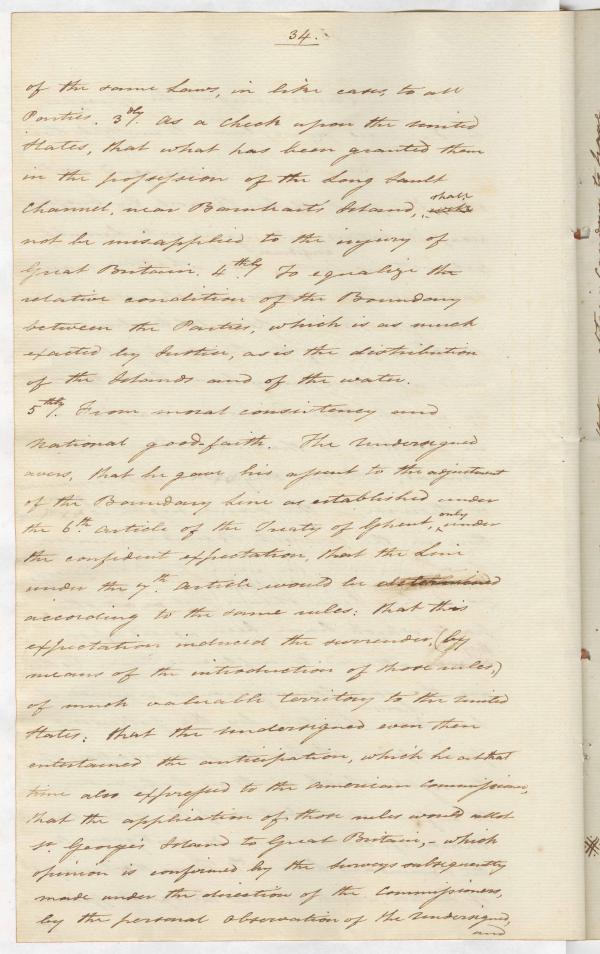 34.
of the same Laws, in like cases, to all
Parties. 3dly. As a Check upon the United
States, that what has been granted them
in the possession of the Long Sault
Channel, near Barnhart's Island, shall
not be misapplied to the injury of
Great Britain. 4thly To equalize the
relative condition of the Boundary
between the Parties, which is as much
exacted by Justice, as is the distribution
of the Islands and of the water.
5thly. From moral consistency and
National good-faith. The Undersigned
avers, that he gave his assent to the adjustment
of the Boundary Line as established under
the 6th. Article of the Treaty of Ghent, only under
the confident expectation, that the Line
under the 7th. Article would be determined
according to the same rules: that this
expectation induced the surrender, (by
means of the introduction of those rules,)
of much valuable territory to the United
States: that the Undersigned even then
entertained the anticipation, which he at that
time also expressed to the American Commissioner,
that the application of those rules would allot
St. George's Island to Great Britain, - which
opinion is confirmed by the Surveys subsequently
made under the direction of the Commissioners,
by the personal Observation of the Undersigned,
and